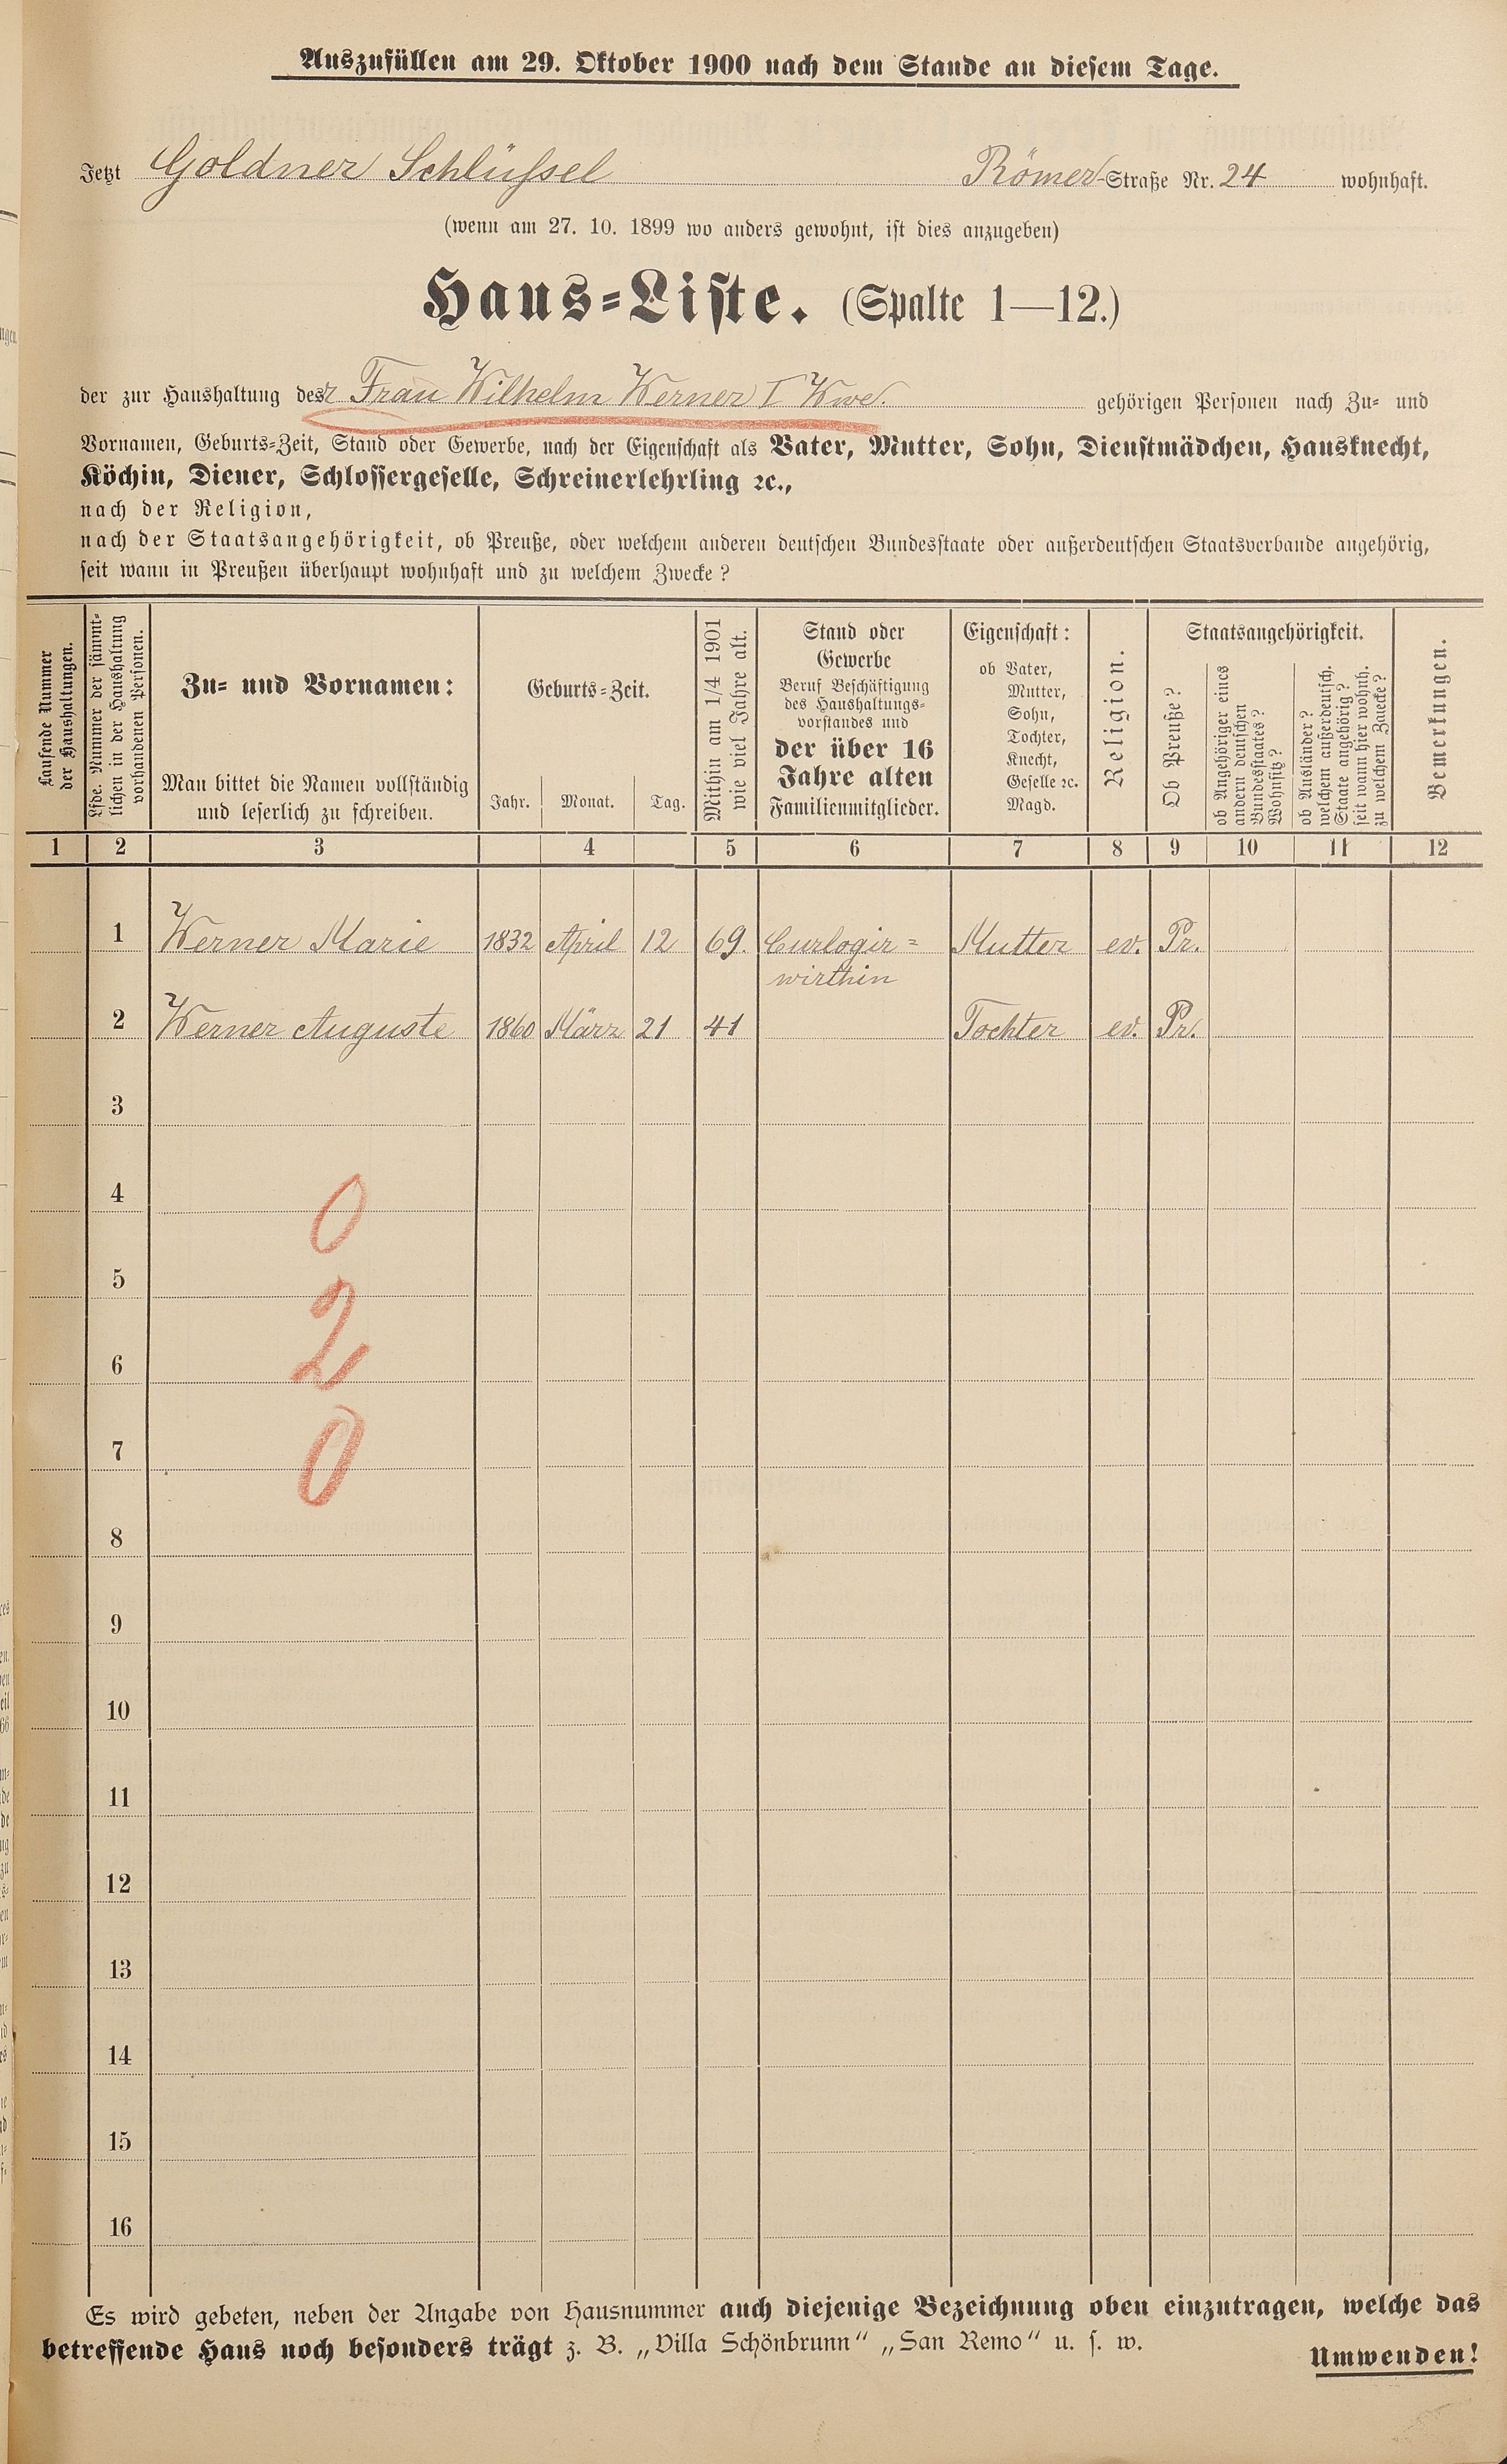 Auszufüllen am 29. Oktober 1900 nach dem Stande an diesem Tage.
Jetzt Goldner Schlüssel Römer-Straße Nr. 24 wohnhaft.
(wenn am 27. 10. 1899 wo anders gewohnt, ist dies anzugeben)
Haus-Liste. (Spalte 1—12.)
der zur Haushaltung der Frau Wilhelm Werner I Wwe. gehörigen Personen nach Zu- und
Vornamen, Geburts-Zeit, Stand oder Gewerbe, nach der Eigenschaft als Vater, Mutter, Sohn, Dienstmädchen, Hausknecht,
Köchin, Diener, Schlossergeselle, Schreinerlehrling ꝛc.,
nach der Religion,
nach der Staatsangehörigkeit, ob Preuße, oder welchem anderen deutschen Bundesstaate oder außerdeutschen Staatsverbande angehörig,
seit wann in Preußen überhaupt wohnhaft und zu welchem Zwecke?
Laufende Nummer
der Haushaltungen.
Lfde. Nummer der sämmt-
lichen in der Haushaltung
vorhandenen Personen.
Zu- und Vornamen:
Man bittet die Namen vollständig
und leserlich zu schreiben.
Geburts-Zeit.
Jahr. Monat. Tag.
Mithin am 1/4 1901
wie viel Jahre alt.
Stand oder
Gewerbe
Beruf Beschäftigung
des Haushaltungs-
vorstandes und
der über 16
Jahre alten
Familienmitglieder.
Eigenschaft:
ob Vater,
Mutter,
Sohn,
Tochter,
Knecht,
Geselle ꝛc.
Magd.
Religion.
Staatsangehörigkeit.
Ob Preuße?
ob Angehöriger eines
andern deutschen
Bundesstaates?
Wohnsitz?
ob Ausländer?
welchem außerdeutsch.
Staate angehörig?
seit wann hier wohnh.
zu welchem Zwecke?
Bemerkungen.
1 2 3 4 5 6 7 8 9 10 11 12
1 Werner Marie 1832 April 12 69. Curlogir- Mutter ev. Pr.
wirthin
2 Werner Auguste 1860 März 21 41 Tochter ev. Pr.
3
4
0
5
2
6
7
0
8
9
10
11
12
13
14
15
16
Es wird gebeten, neben der Angabe von Hausnummer auch diejenige Bezeichnung oben einzutragen, welche das
betreffende Haus noch besonders trägt z. B. „Villa Schönbrunn“ „San Remo“ u. s. w.
Umwenden!